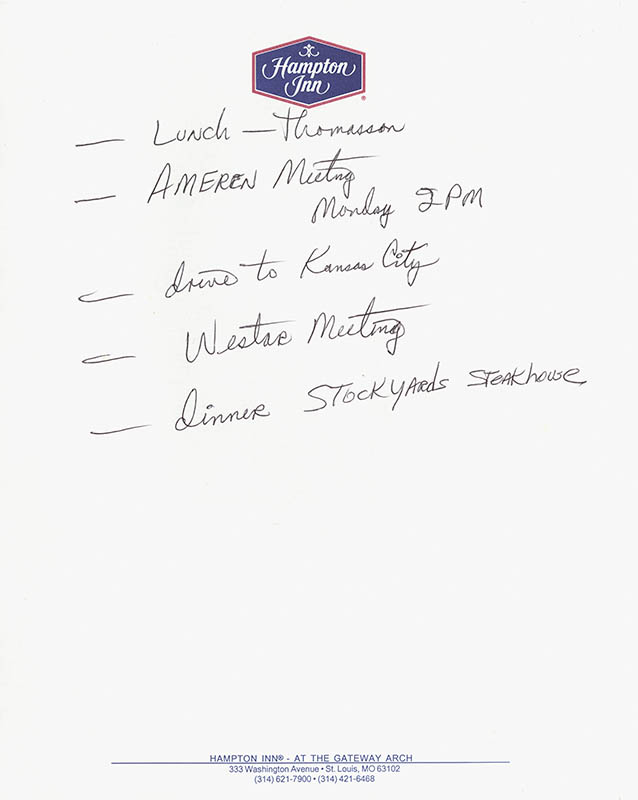 Hampton
Inn
— Lunch — Thomasson
— AMEREN Meeting
Monday 2 PM
— drive to Kansas City
— Westar Meeting
— dinner STOCKYARDS STEAKHOUSE
HAMPTON INN® - AT THE GATEWAY ARCH
333 Washington Avenue • St. Louis, MO 63102
(314) 621-7900 • (314) 421-6468